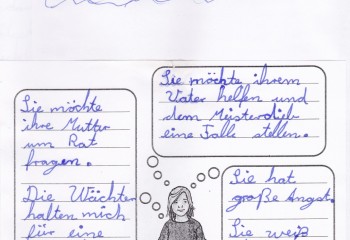 Sie möchte
ihre Mutter
um Rat
fragen.
Die Wächter
halten mich
für eine
Sie möchte ihrem
Vater helfen und
dem Meisterdieb
eine Falle stellen.
Sie hat
große Angst.
Sie weiß